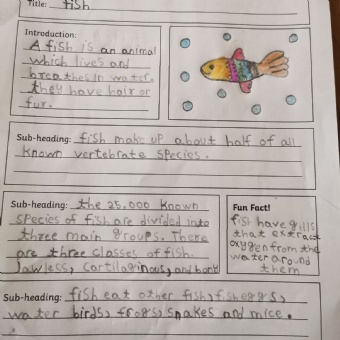 Title: fish
Introduction:
A fish is an animal
which lives and
breathes in water.
they have hair or
fur.
Sub-heading: fish make up about half of all
known vertebrate species.
Sub-heading: the 25,000 known
species of fish are divided into
three main groups. There
are three classes of fish.
Jawless, cartilaginous, and bony
Fun Fact!
fish have gills
that extract
oxygen from the
water around
them
Sub-heading: fish eat other fish, fish eggs,
water birds, frogs, snakes and mice.